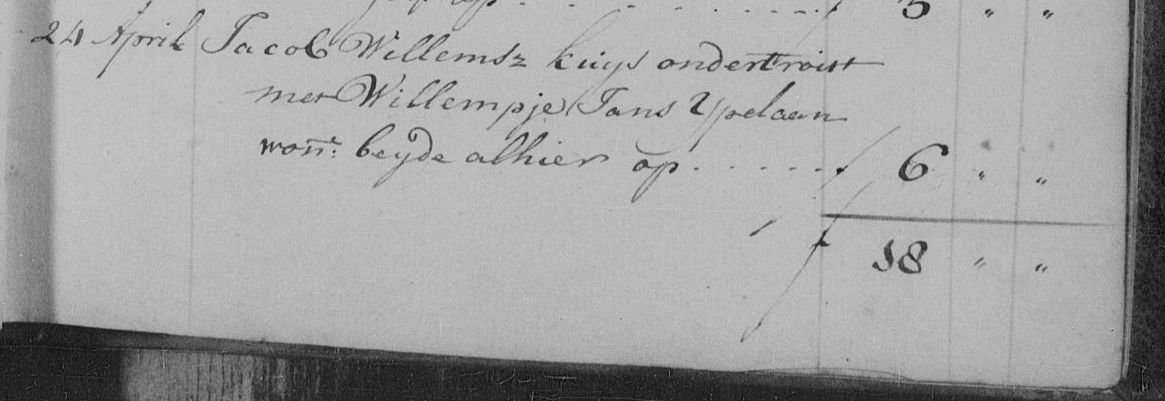 op . . . . . . ƒ 3 " "
24 April Jacob Willemsz kuijs ondertrout
met Willempje Jans Ypelaan
won: beyde alhier op . . . . . ƒ 6 " "
ƒ 18 " "